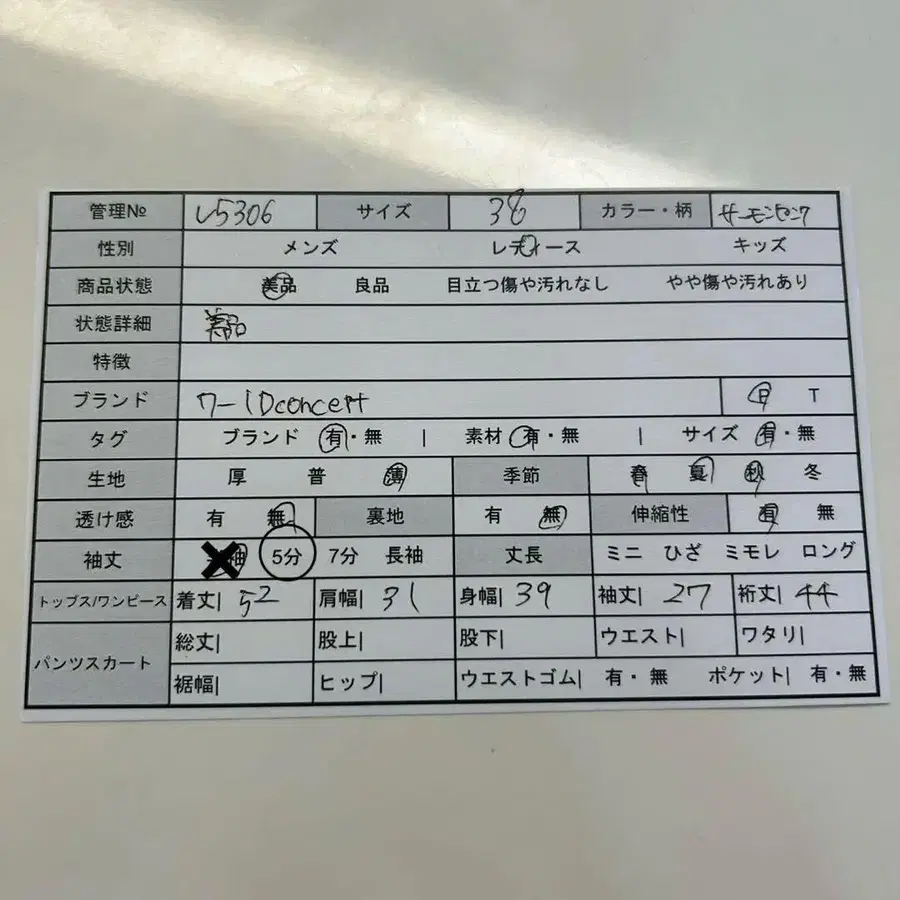 管理№ い5306 サイズ 38 カラー・柄 サーモンピンク
性別 メンズ レディース キッズ
商品状態 美品 良品 目立つ傷や汚れなし やや傷や汚れあり
状態詳細 美品
特徴
ブランド ワールドconcert P T
タグ ブランド 有・無 | 素材 有・無 | サイズ 有・無
生地 厚 普 薄 季節 春 夏 秋 冬
透け感 有 無 裏地 有 無 伸縮性 有 無
袖丈 袖 5分 7分 長袖 丈長 ミニ ひざ ミモレ ロング
トップス/ワンピース 着丈| 52 肩幅| 31 身幅| 39 袖丈| 27 裄丈| 44
パンツスカート 総丈| 股上| 股下| ウエスト| ワタリ|
裾幅| ヒップ| ウエストゴム| 有・無 ポケット| 有・無